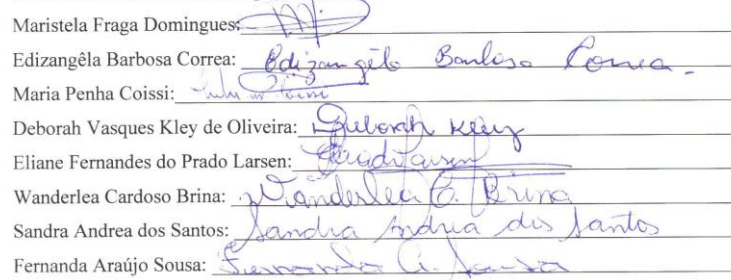 Maristela Fraga Domingues:
Edizangêla Barbosa Correa: Edizangêla Barbosa Correa.
Maria Penha Coissi:
Deborah Vasques Kley de Oliveira: Deborah Kley
Eliane Fernandes do Prado Larsen: Prado Larsen
Wanderlea Cardoso Brina: Wanderlea C. Brina
Sandra Andrea dos Santos: Sandra Andrea dos Santos
Fernanda Araújo Sousa: Fernanda A. Sousa